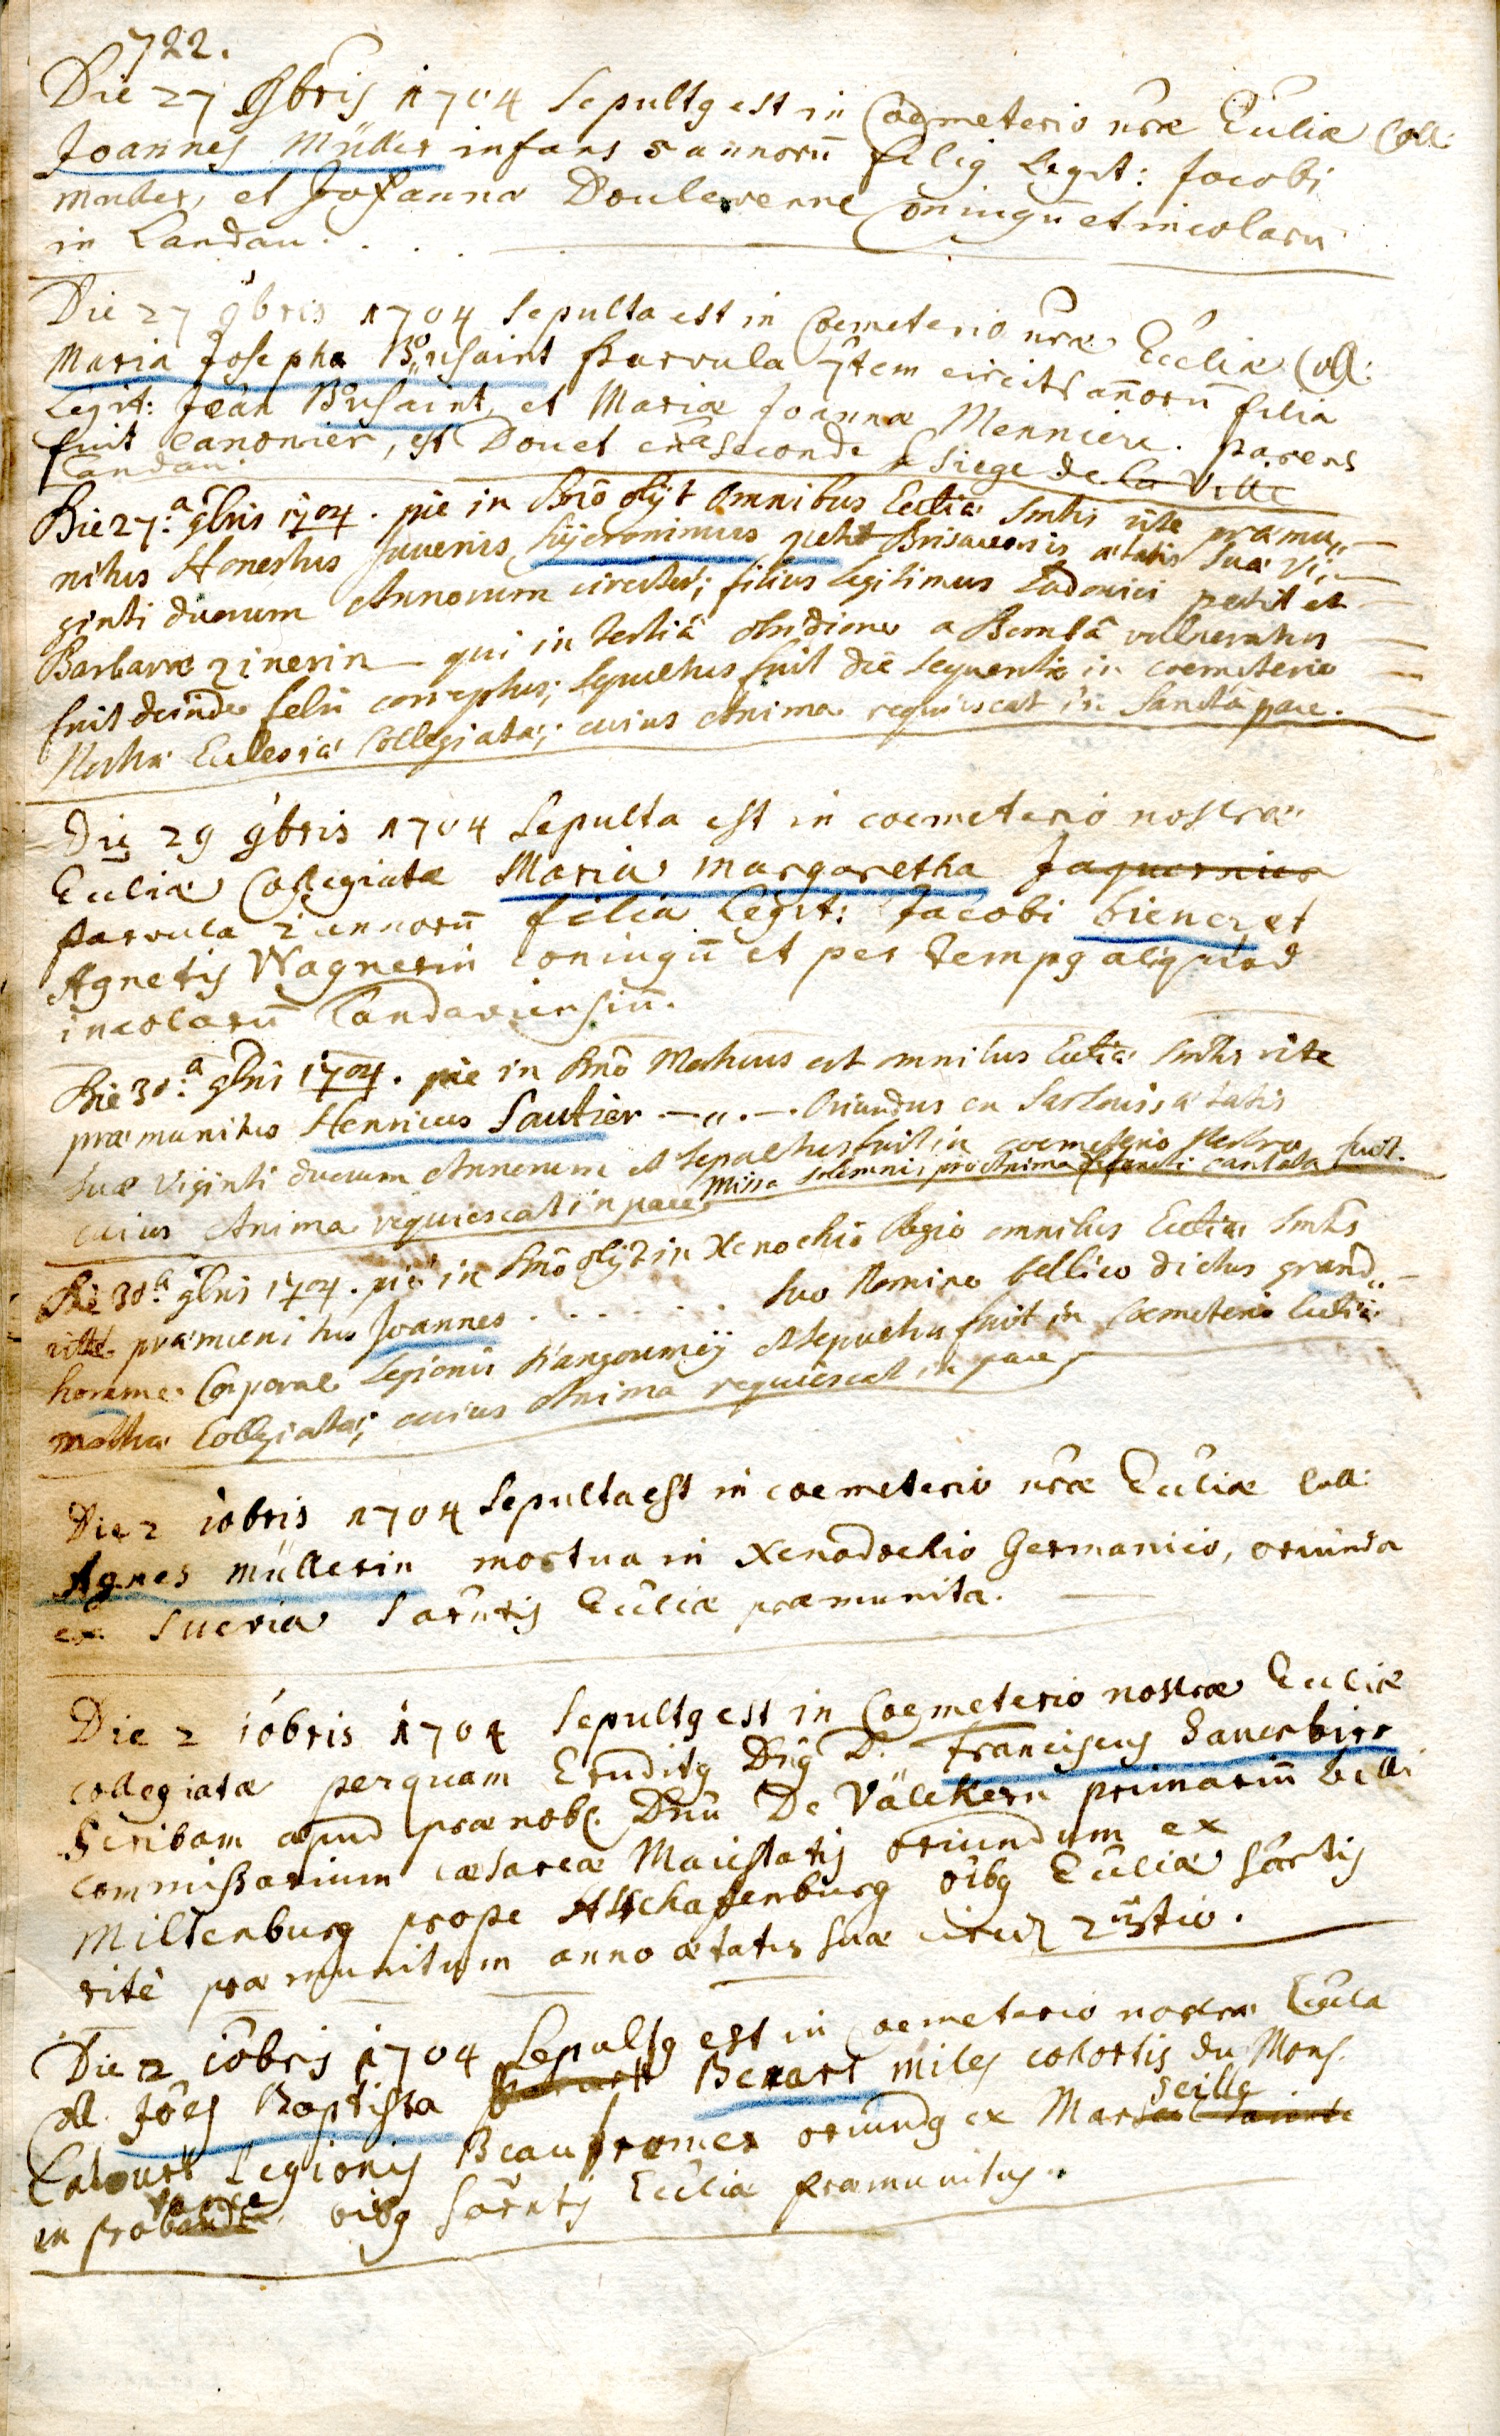 722.
Die 27 9bris 1704 Sepultg est in Coemeterio nrae Eccliae Coll:
Joannes Müller infans 5 annorū filig Legit: Jacobi
muller, et Johanna Douleverne Coniugū et incolarū
in Landau.
Die 27 9bris 1704 Sepulta est in Coemeterio nrae Eccliae Coll:
Maria Josepha Busaint parvula 7tem circit annorū filia
Legit: Jean Busaint, et Maria Joanna Menniere. parens
fuit canonier, est Douet seconde Siege de la Ville
Landau.
Die 27.a 9bris 1704. pie in Dno obijt omnibus Ecclia Smtis rite praemu,,
nitus Honestus Juvenis Hijeronimus petit Brisacensis aetatis sua vi,
ginti duorum Annorum circiter; filius legitimus Ludovici petit et
Barbarae zinerin qui in tertiâ obsidione a Bombâ vulneratus
fuit deinde febri correptus; sepultus fuit die sequenti in coemeterio
Nostra Eclesia Collegiata; cuius Anima requiescat in Sanctâ pace.
Die 29 9bris 1704 Sepulta est in coemeterio nostrae
Eccliae Collegiatae Maria Margaretha Jaquernica
parvula 2 annorū filia Legit: Jacobi bienez et
Agnetis Wagnerin Coniugū et per tempg aliquod
incolarū Landaviensiū.
Die 30.a 9bris 1704. pie in Dno Mortuus est omnibus Ecclia Smtis rite
praemunitus Henricus Sautier -,,.- Oriundus en Sarlouis, aetatis
suae viginti duorum Annorum et sepultus fuit in coemeterio Nostro
Missa solemnis pro Anima defuncti cantata fuit.
cuius Anima requiescat in pace.
Die 30.a 9bris 1704. pie in Dno obijt in Xenochio Regio omnibus Ecclia Smtis
rite praemunitus Joannes . . . . . . . suo Nomine bellico dictus grand,,
homme Corporal Legionis D'angoumeij et sepultus fuit in Coemeterio Ecclia
nostra Collegiata; cuius Anima requiescat in pace
Die 2 10bris 1704 Sepulta est in coemeterio nrae Eccliae Coll:
Agnes müllerin mortua in Xenodochio Germanico, oriunda
ex Suevia Sacrntis Eccliae praemunita.
Die 2 10bris 1704 Sepultg est in Coemeterio nostrae Eccliae
collegiatae perquam Eruditg Dng D. Franciscus Sauerbier
Scribam apud praenob. Dnū De Välckern primariū belli
commissarium caesareae Maiestatis oriundum ex
Miltenburg prope Aschafenburg oibg Eccliae Sacrtis
ritè praemunitum anno aetatis suae circit 23tio.
Die 2 10bris 1704 Sepultg est in Coemeterio nostra Eccla
Coll. Joes Baptista Bexart miles cohortis du Mons.
Latourt Legionis Beaufromer oriundg ex Marseille
en provance oibg Sacrntis Eccliae praemunitus.